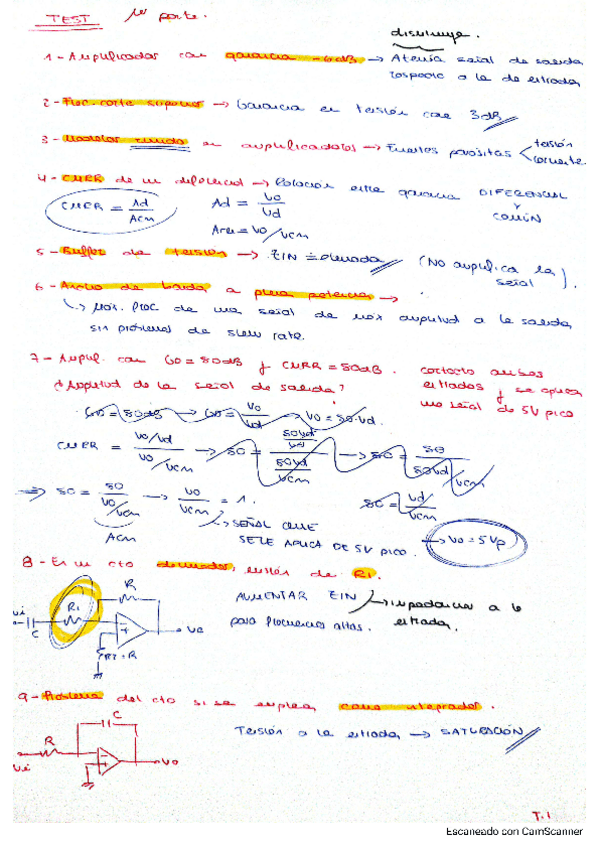 TEST 1ª parte.
disminuye.
1- Amplificador con ganancia -6dB → Atenúa señal de salida
respecto a la de entrada
2- Frec. corte superior → Ganancia en tensión cae 3dB
3- Modelos ruido en amplificadores → Fuentes parásitas < tensión
corriente.
4- CMRR de un diferencial → Relación entre ganancia DIFERENCIAL
Y
COMÚN
CMRR = Ad / Acm
Ad = Vo / Vd
Acm = Vo / Vcm
5- Buffer de tensión → ZIN = elevada (No amplifica la señal).
6- Ancho de banda a plena potencia →
↳ Máx. frec de una señal de máx amplitud a la salida
sin problemas de slew rate.
7- Ampl. con Gd = 80dB y CMRR = 80dB. cortocto ambas
entradas y se aplica
una señal de 5V pico
¿Amplitud de la señal de salida?
Gd = 80dB → Gd = Vo / Vd → Vo = 80·Vd.
CMRR = Vo/Vd / Vo/Vcm → 80 = 80Vd/Vd / 80Vd/Vcm → 80 = 80 / 80Vd/Vcm
⇒ 80 = 80 / Vo/Vcm → Vo/Vcm = 1.
80 = Vd/Vcm
Acm
↳ SEÑAL QUE
SE LE APLICA DE 5V PICO. → Vo = 5Vp
8- En un cto derivador, misión de R1.
AUMENTAR ZIN → impedancia a la
entrada.
para frecuencias altas.
R
R1
Vi
C
Vo
R2=R
9- Problema del cto si se emplea como integrador.
Tensión a la entrada → SATURACIÓN
C
R
Vi
Vo
T.1
Escaneado con CamScanner